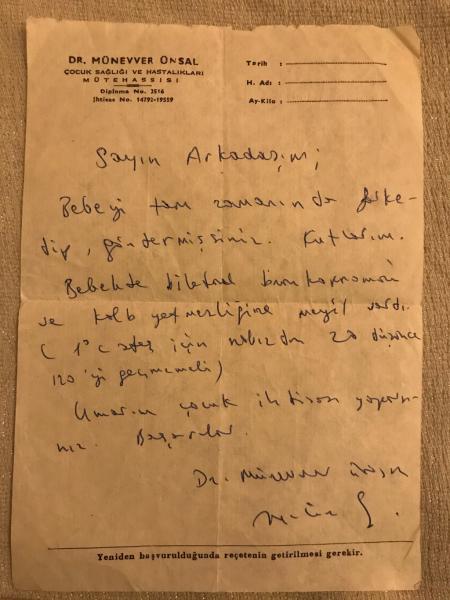 DR. MÜNEVVER ÜNSAL
ÇOCUK SAĞLIĞI VE HASTALIKLARI
MÜTEHASSISI
Diploma No. 2516
İhtisas No. 14792-19559
Tarih :
H. Adı :
Ay-Kilo :
Sayın Arkadaşım;
Bebeyi tam zamanında farke-
dip, göndermişsiniz. Kutlarım.
Bebekte bilateral bronkopnomoni
ve kalb yetmezliğine meyil vardı.
( 1°c ateş için nabızdan 20 düşünce
120'yi geçmemeli)
Umarım çocuk ihtisası yaparsı-
nız. Başarılar.
Dr. Münevver Ünsal
Yeniden başvurulduğunda reçetenin getirilmesi gerekir.